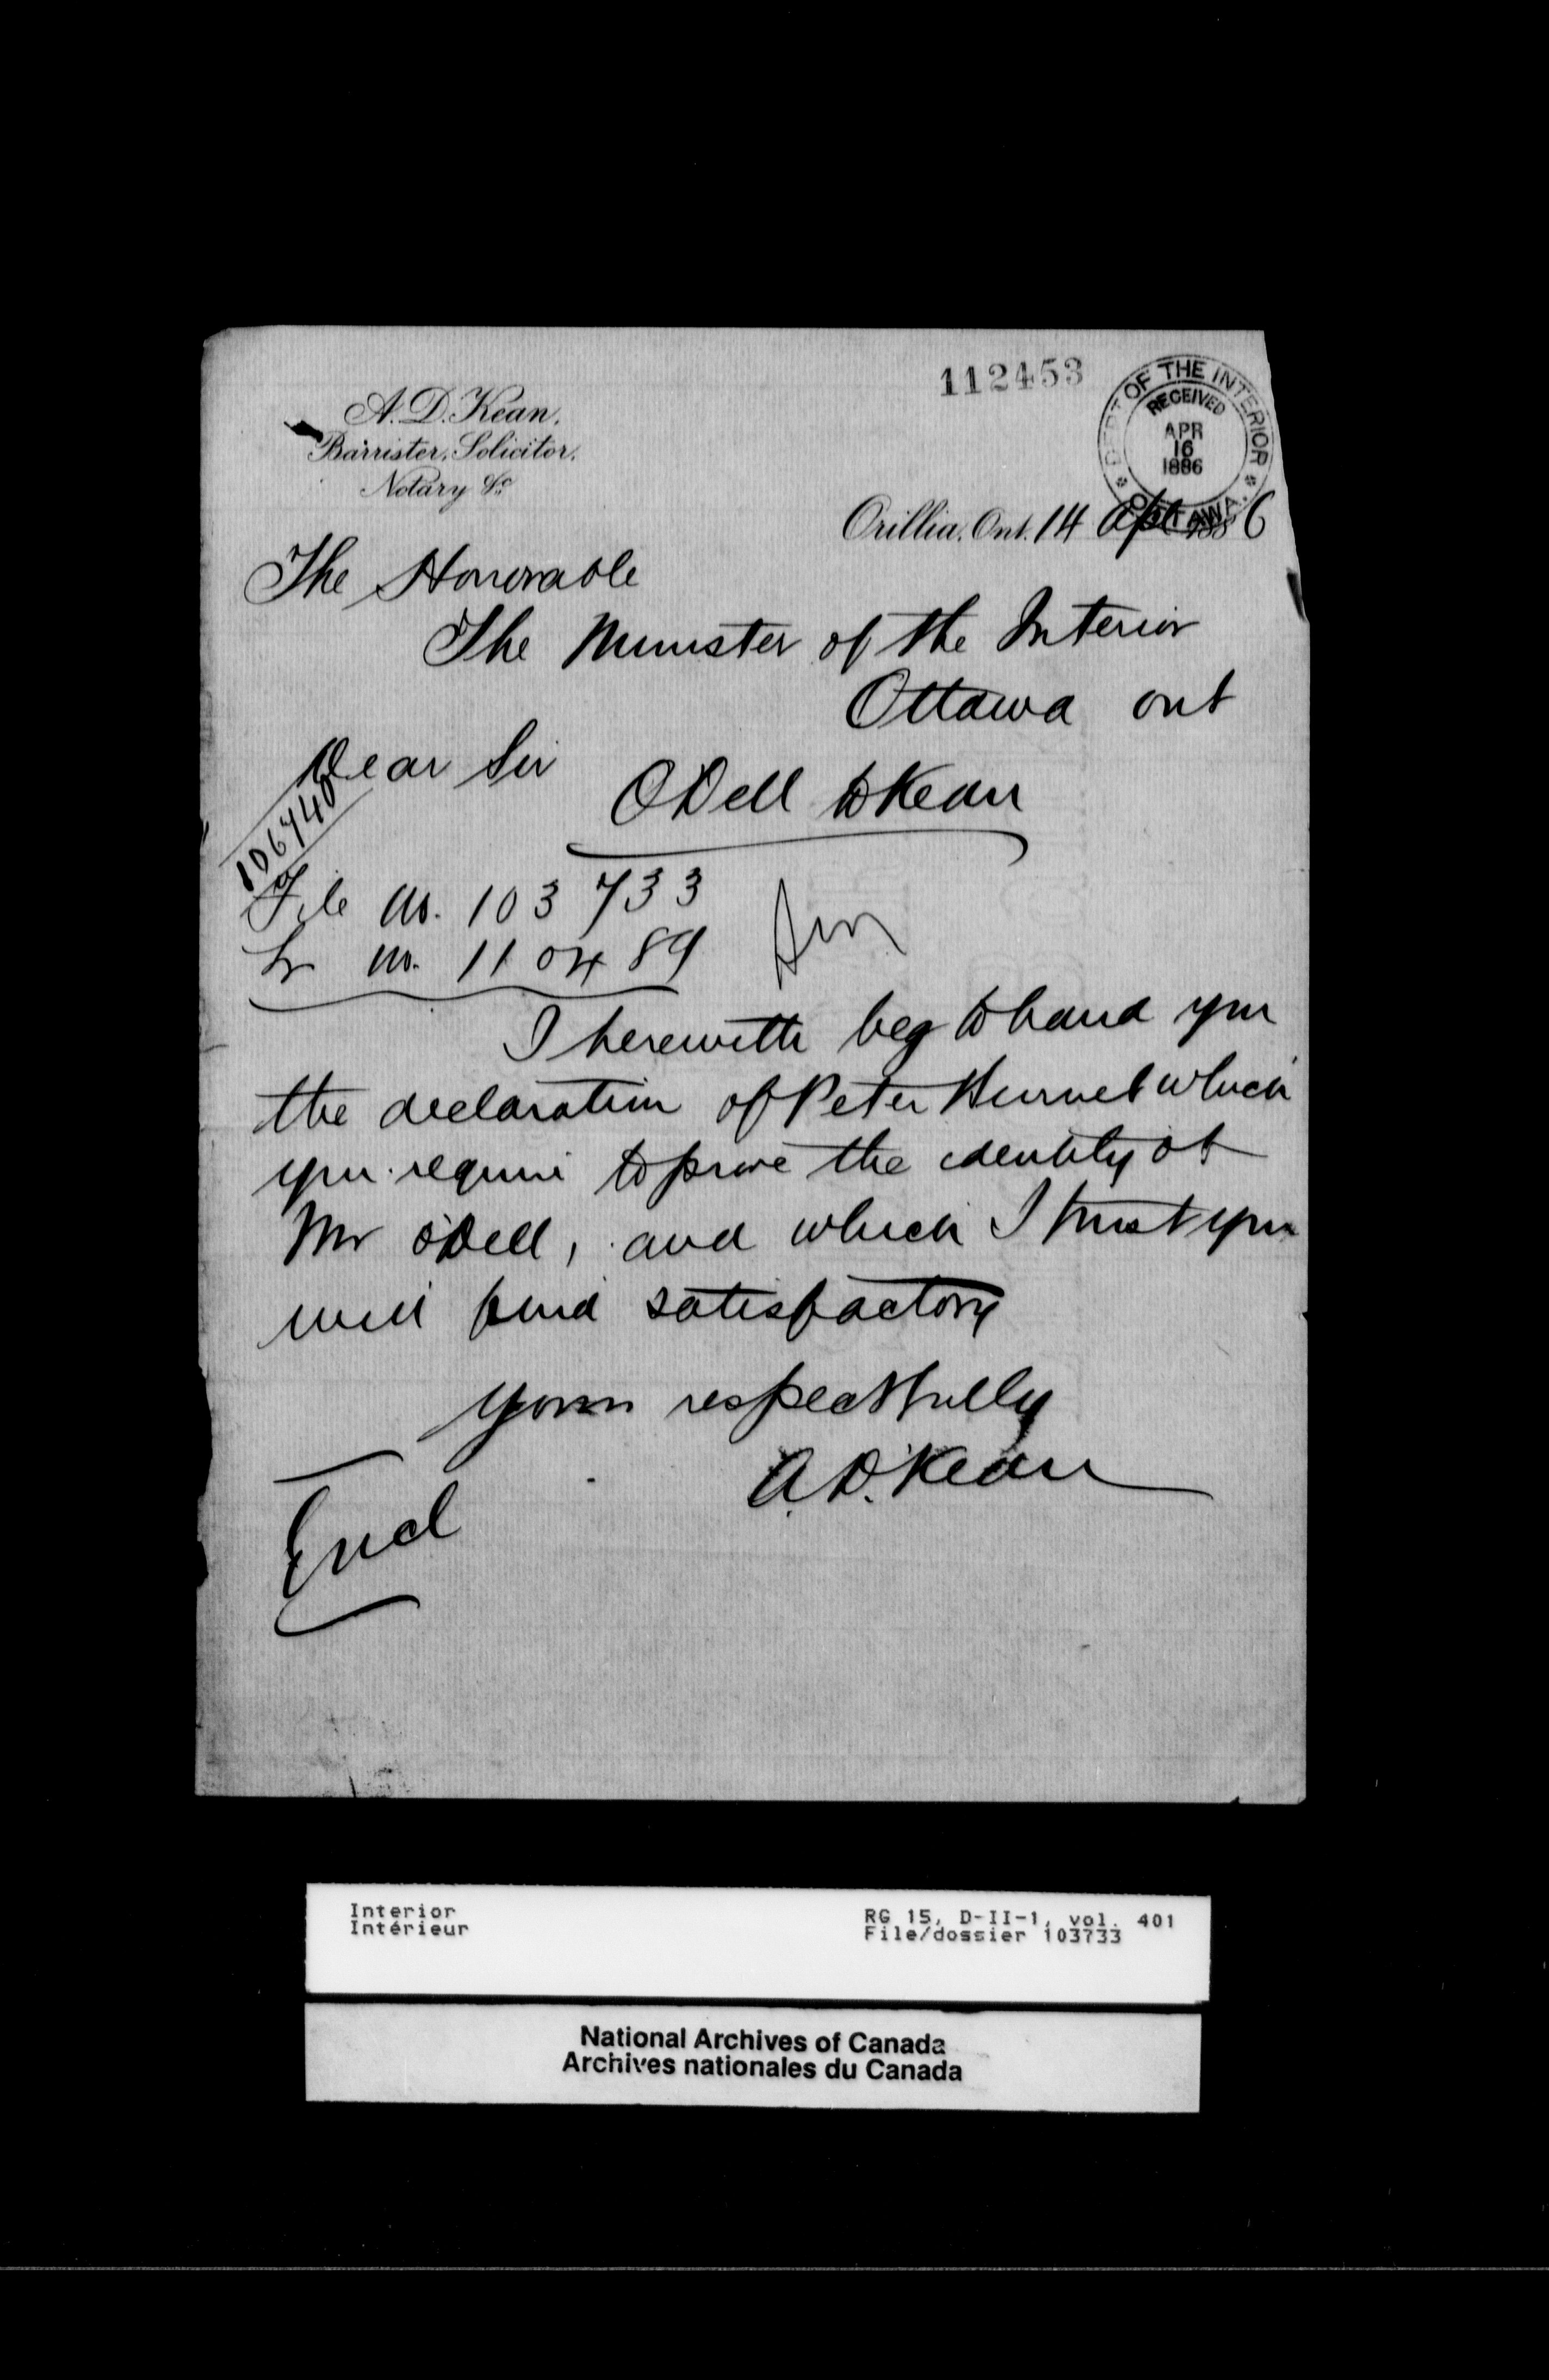 112453
DEPT OF THE INTERIOR
RECEIVED
APR
16
1886
OTTAWA.
A. D. Kean,
Barrister, Solicitor,
Notary &c
Orillia, Ont. 14 Apl 1886
The Honorable
The Minister of the Interior
Ottawa Ont
Dear Sir
O'Dell to Kean
106740
File No. 103733
Lr No. 110489
I herewith beg to hand you
the declaration of Peter which
you require to prove the identity of
Mr O'Dell, and which I trust you
will find satisfactory
Yours respectfully
A. D. Kean
Encl
Interior
Intérieur
RG 15, D-II-1, vol. 401
File/dossier 103733
National Archives of Canada
Archives nationales du Canada